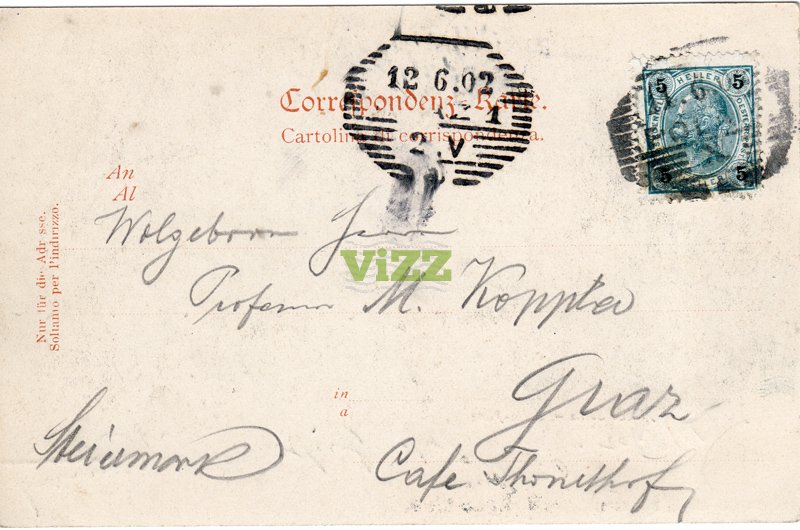 12 6.02
1
2. V
5 HELLER 5
5 5
Correspondenz-Karte.
Cartolina di corrispondenza.
An
Al
Nur für die Adresse.
Soltanto per l'indirizzo.
Wolgeborn Herrn
ViZZ
Professor M. Koppler
in
a
Graz
Steiermark
Cafe Thonethof